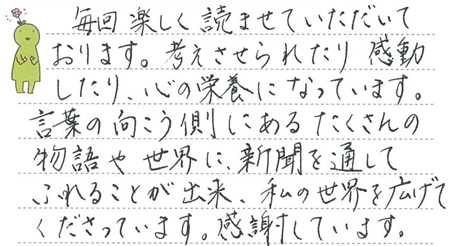 毎回楽しく読ませていただいて
おります。考えさせられたり感動
したり、心の栄養になっています。
言葉の向こう側にあるたくさんの
物語や世界に、新聞を通して
ふれることが出来、私の世界を広げて
くださっています。感謝しています。